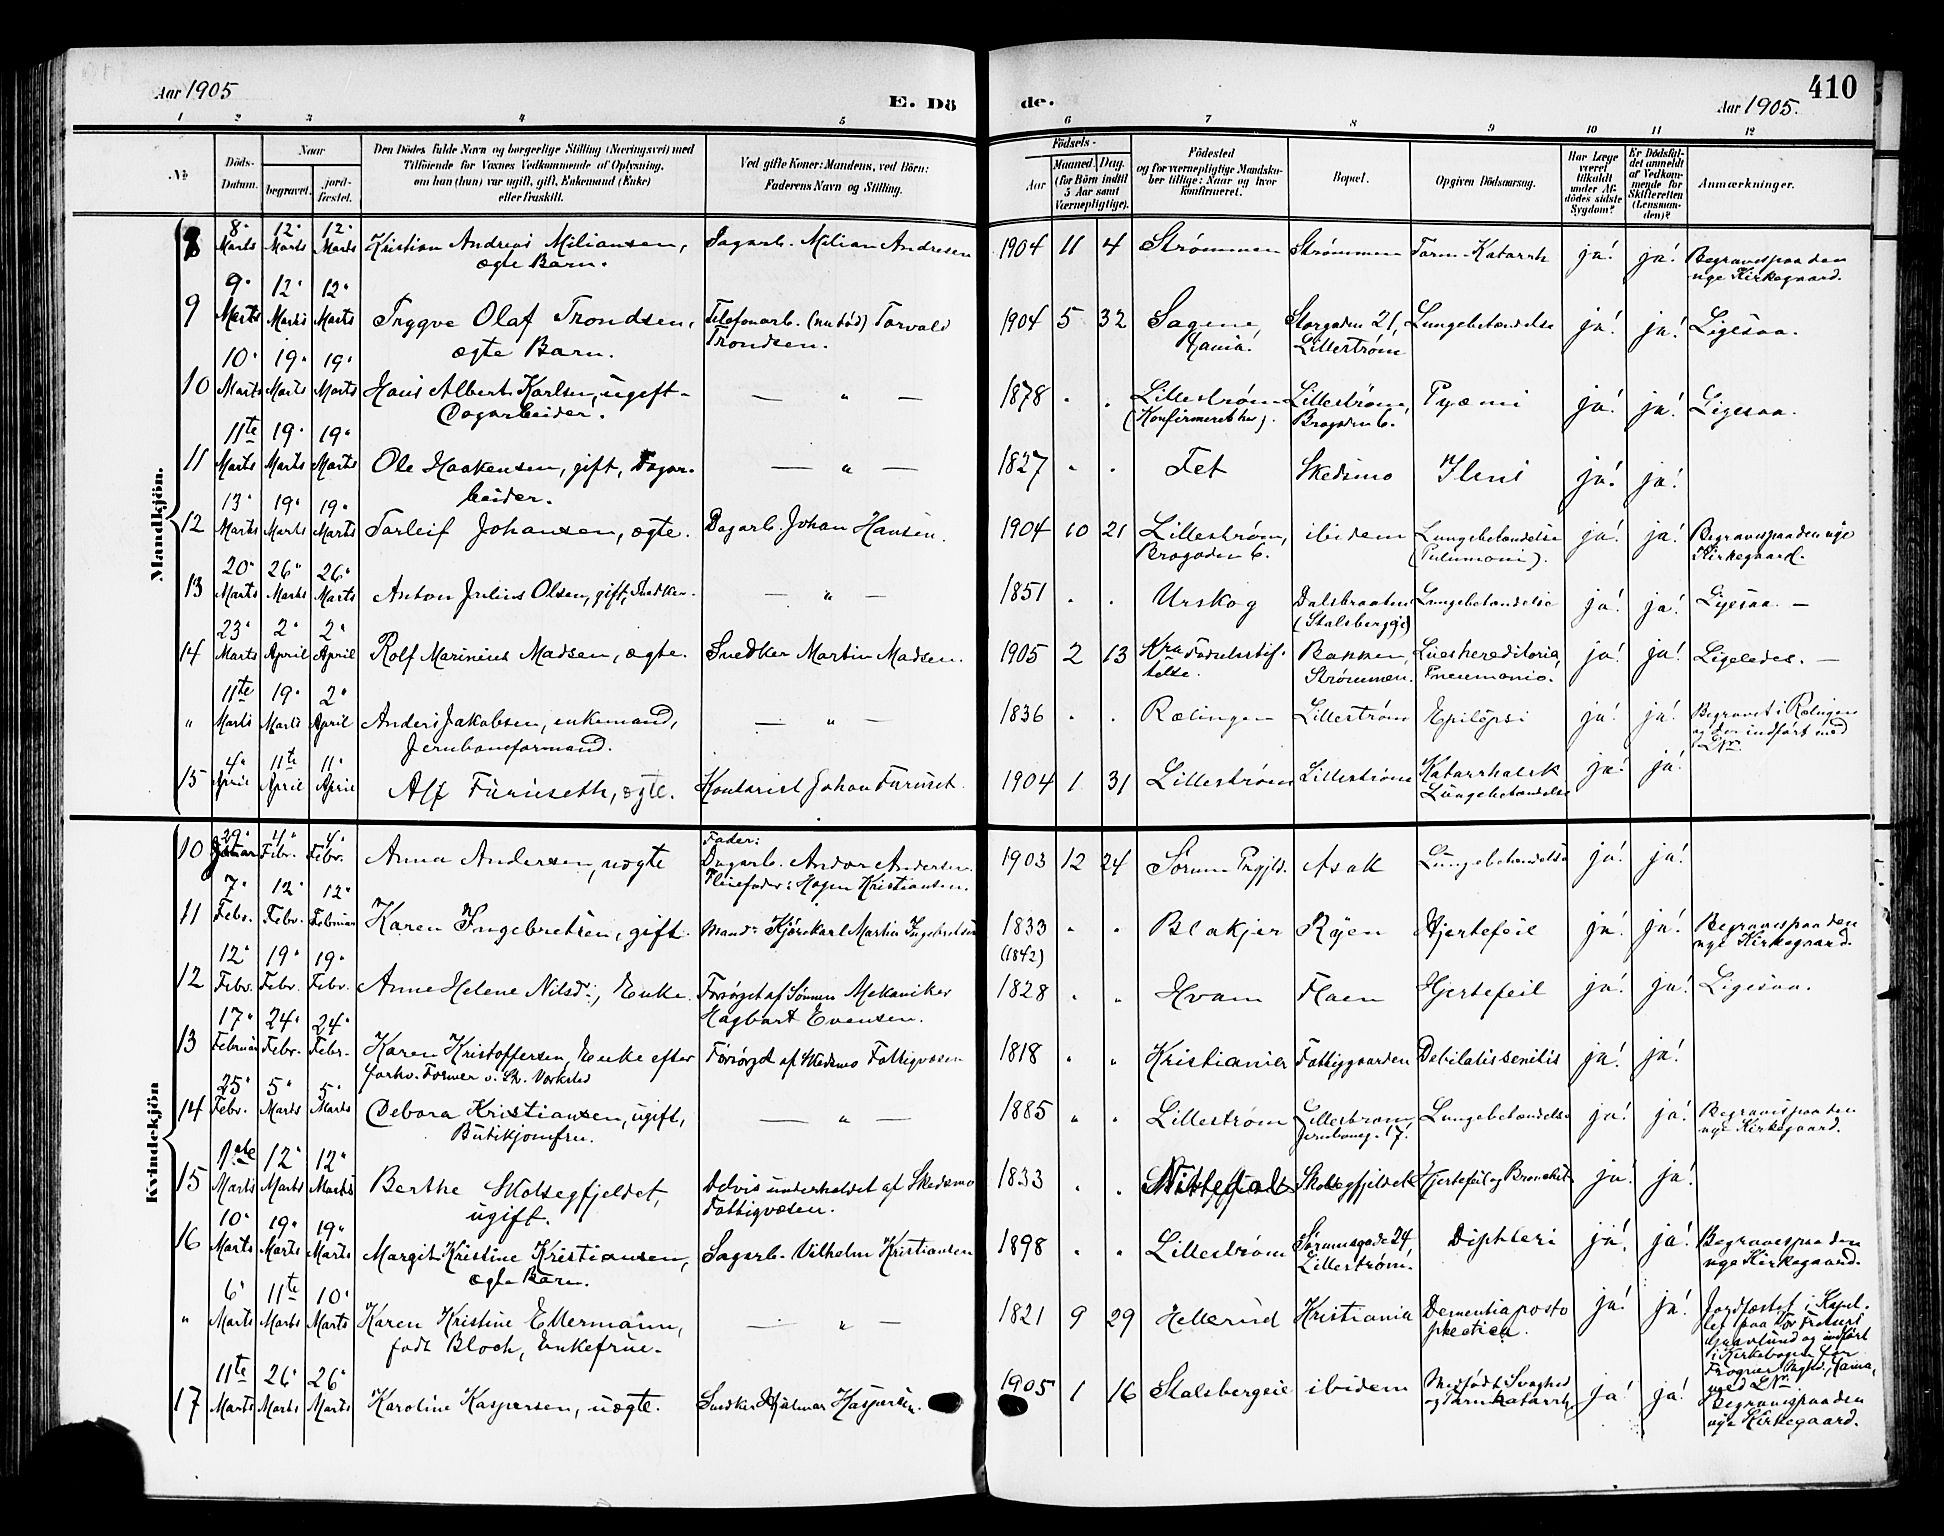 Aar 1905
E. Dö
de.
Aar 1905.
410
1 2 3 4 5 6 7 8 9 10 11 12
№
Döds-
Datum.
Naar
begravet.
jord-
fæstet.
Den Dödes fulde Navn og borgerlige Stilling (Næringsvei) med
Tilföiende for Voxnes Vedkommende af Oplysning,
om han (hun) var ugift, gift, Enkemand (Enke)
eller fraskilt.
Ved gifte Koner: Mandens, ved Börn:
Faderens Navn og Stilling.
Födsels-
Aar
Maaned. Dag.
(for Börn indtil
5 Aar samt
Værnepligtige).
Födested
og for værnepligtige Mandska-
ber tillige: Naar og hvor
konfirmeret.
Bopæl.
Opgiven Dödsaarsag.
Har Læge
været
tilkaldt
under Af-
dödes sidste
Sygdom?
Er Dödsfal-
det anmeldt
af Vedkom-
mende for
Skifteretten
(Lensman-
den)?
Anmærkninger.
Mandkjön.
8 8. Marts 12. Marts 12. Marts Kristian Andreas Miliansen, Sagarb. Milian Andresen 1904 11 4 Strømmen Strømmen Tarm-Katarrh ja! ja! Begravespaa den
ægte Barn. nye Kirkegaard.
9 9. Marts 12. Marts 12. Marts Tryggve Olaf Trondsen, Telefonarb. (nu død) Torvald 1904 5 32 Sagene, Storgaden 21, Lungebetændelse ja! ja! Ligesaa.
ægte Barn. Trondsen. Kania. Lillestrøm
10 10. Marts 19. Marts 19. Marts Hans Albert Karlsen, ugift - — „ — 1878 . . Lillestrøm Lillestrøm, Pyæmi ja! ja! Ligesaa.
Dagarbeider. (Konfirmeret her). Brogaden 6.
11 11te Marts 19. Marts 19. Marts Ole Haakensen, gift, Dagar- — „ — 1827 . . Fet Skedsmo Ileus ja! ja!
beider.
12 13. Marts 19. Marts 19. Marts Torleif Johansen, ægte. Dagarb. Johan Hansen. 1904 10 21 Lillestrøm, ibidem Lungebetændelse ja! ja! Begravespaa den nye
Brogaden 6. (Pulumoni). Kirkegaard.
13 20. Marts 26. Marts 26. Marts Anton Julius Olsen, gift, Snedker. — „ — 1851 . . Urskog Dalsbraaten Lungebetændelse ja! ja! Ligesaa. —
(Stalsberg eje)
14 23. Marts 2. April 2. April Rolf Marinius Madsen, ægte. Snedker Martin Madsen. 1905 2 13 Kra Fødselsstif- Bakken, Lues hereditoria, ja! ja! Ligeledes. —
telse. Strømmen. Pneumonia.
„ 11te Marts 19. Marts 2. April Anders Jakobsen, enkemand, — „ — 1836 . . Rælingen Lillestrøm Epilepsi ja! ja! Begravet i Rælingen
Jernbaneformand. og der indført med
L№.
15 4. April 11te April 11. April Alf Furuseth, ægte. Kontorist Johan Furuset. 1904 1 31 Lillestrøm Lillestrøm Katarrhalsk ja! ja!
Lungebetændelse
Kvindekjön
10 29. Januar 4. Febr. 4. Febr. Anna Andersen, uægte Fader:
Dagarb. Andor Andersen. 1903 12 24 Sørum Prgjld. Asak Lungebetændelse ja! ja!
Pleiefader: Hagen Kristiansen.
11 7. Febr. 12. Febr. 12. Februar Karen Ingebretsen, gift. Mand: Kjørekarl Martin Ingebretsen 1833 „ „ Blakjer Røien Hjertefeil ja! ja! Begravespaa den
(1842) nye Kirkegaard.
12 12. Febr. 19. Febr. 19. Febr. Anne Helene Nilsd:, Enke. Forsørget af Sønnen Mekaniker 1828 „ „ Hvam Flaen Hjertefeil ja! ja! Ligesaa.
Hagbart Evensen.
13 17. Februar 24. Febr. 24. Febr. Karen Kristoffersen, Enke efter Forsørget af Skedsmo Fattigvæsen 1818 „ „ Kristiania Fattiggaarden Debilatis senilis ja! ja!
forhv. Former v. St. Værksted
14 25. Febr. 5. Marts 5. Marts Debora Kristiansen, ugift, — „ — 1885 „ „ Lillestrøm Lillestrøm, Lungebetændelse ja! ja! Begravespaa den
Butikjomfru. Jernbaneg. 17. nye Kirkegaard.
15 1ste Marts 12. Marts 12. Marts Berthe Skolsegfjeldet, Delvis underholdet af Skedsmo 1833 „ „ Nittedal Skolsegfjeldet Hjertefeil og Bronchit ja! ja!
ugift. Fattigvæsen.
16 10. Marts 19. Marts 19. Marts Margit Kristine Kristiansen, Sagarb. Vilhelm Kristiansen 1898 „ „ Lillestrøm Sørumsgade 24, Diphteri ja! ja! Begravespaa den
ægte Barn. Lillestrøm. nye Kirkegaard.
„ 6. Marts 11te Marts 10. Marts Karen Kristine Ellermann, — „ — 1821 9 29 Hellerud Kristiania Dementia posto ja! ja! Jordfæstet i Kapel-
født Bloch, Enkefrue. plectica. let paa Vor Frelsers
Gravlund og indført
i Kirkebogen for
Frogner Mghd., Kania,
med L№.
17 11te Marts 26. Marts 26. Marts Karoline Kaspersen, uægte. Snedker Hjalmar Kaspersen. 1905 1 16 Stalsbergeie ibidem Medfødt Svaghed ja! ja! Begravespaa den
og Tarmkatarrh nye Kirkegaard.